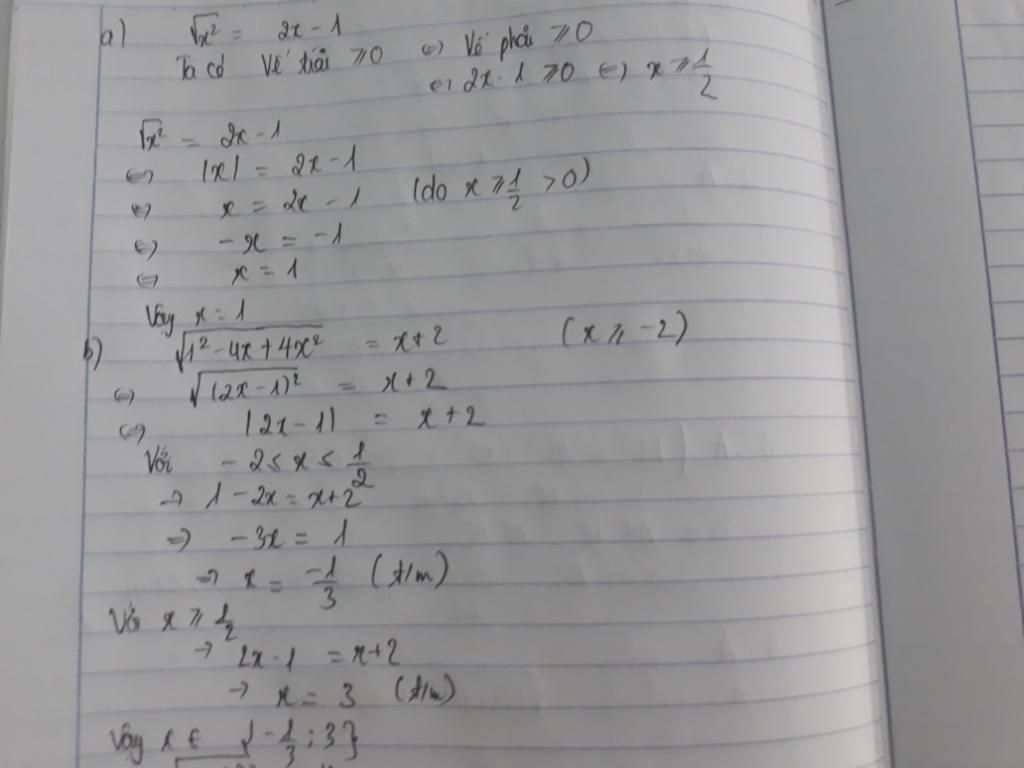 a) √x² = 2x - 1
Ta có Vế trái ⩾0 ⇔ Vế phải ⩾0
⇔ 2x - 1 ⩾0 ⇔ x ⩾ 1/2
√x² = 2x - 1
⇔ |x| = 2x - 1
⇔ x = 2x - 1 (do x ⩾ 1/2 > 0)
⇔ -x = -1
⇔ x = 1
Vậy x = 1
b) √(1² - 4x + 4x²) = x+2 (x ⩾ -2)
⇔ √((2x - 1)²) = x+2
⇔ |2x - 1| = x+2
Với -2 ⩽ x ⩽ 1/2
→ 1 - 2x = x+2
⇒ -3x = 1
→ x = -1/3 (t/m)
Với x ⩾ 1/2
→ 2x - 1 = x+2
→ x = 3 (t/m)
Vậy x ∈ {-1/3 ; 3}